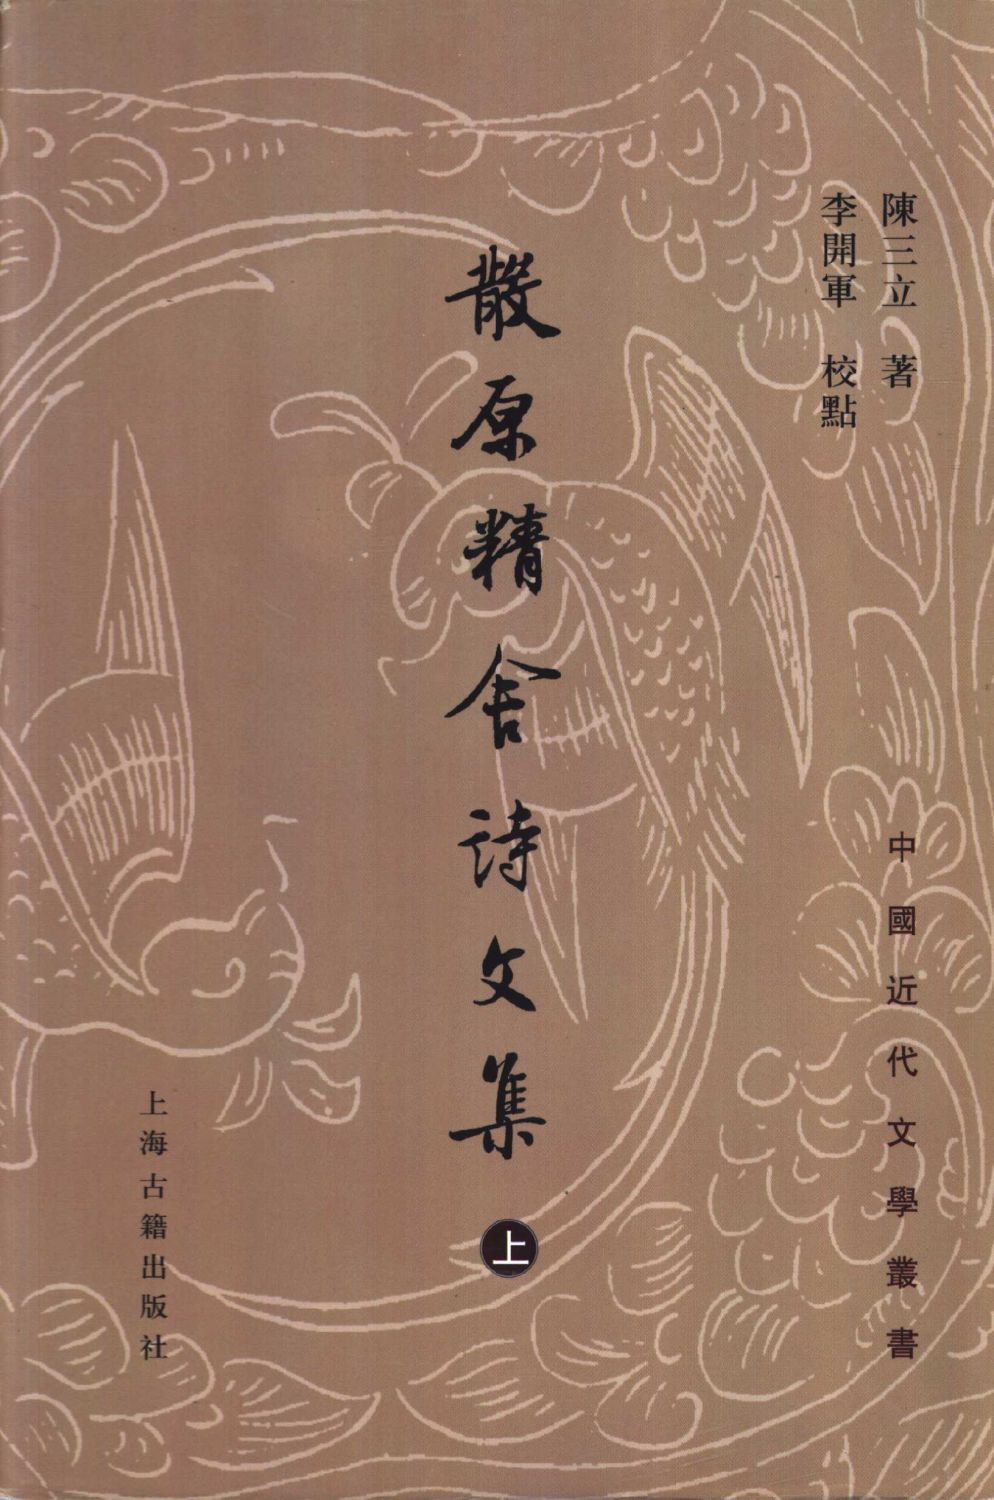 陳三立 著
李開軍 校點
散原精舍詩文集 上
中國近代文學叢書
上海古籍出版社